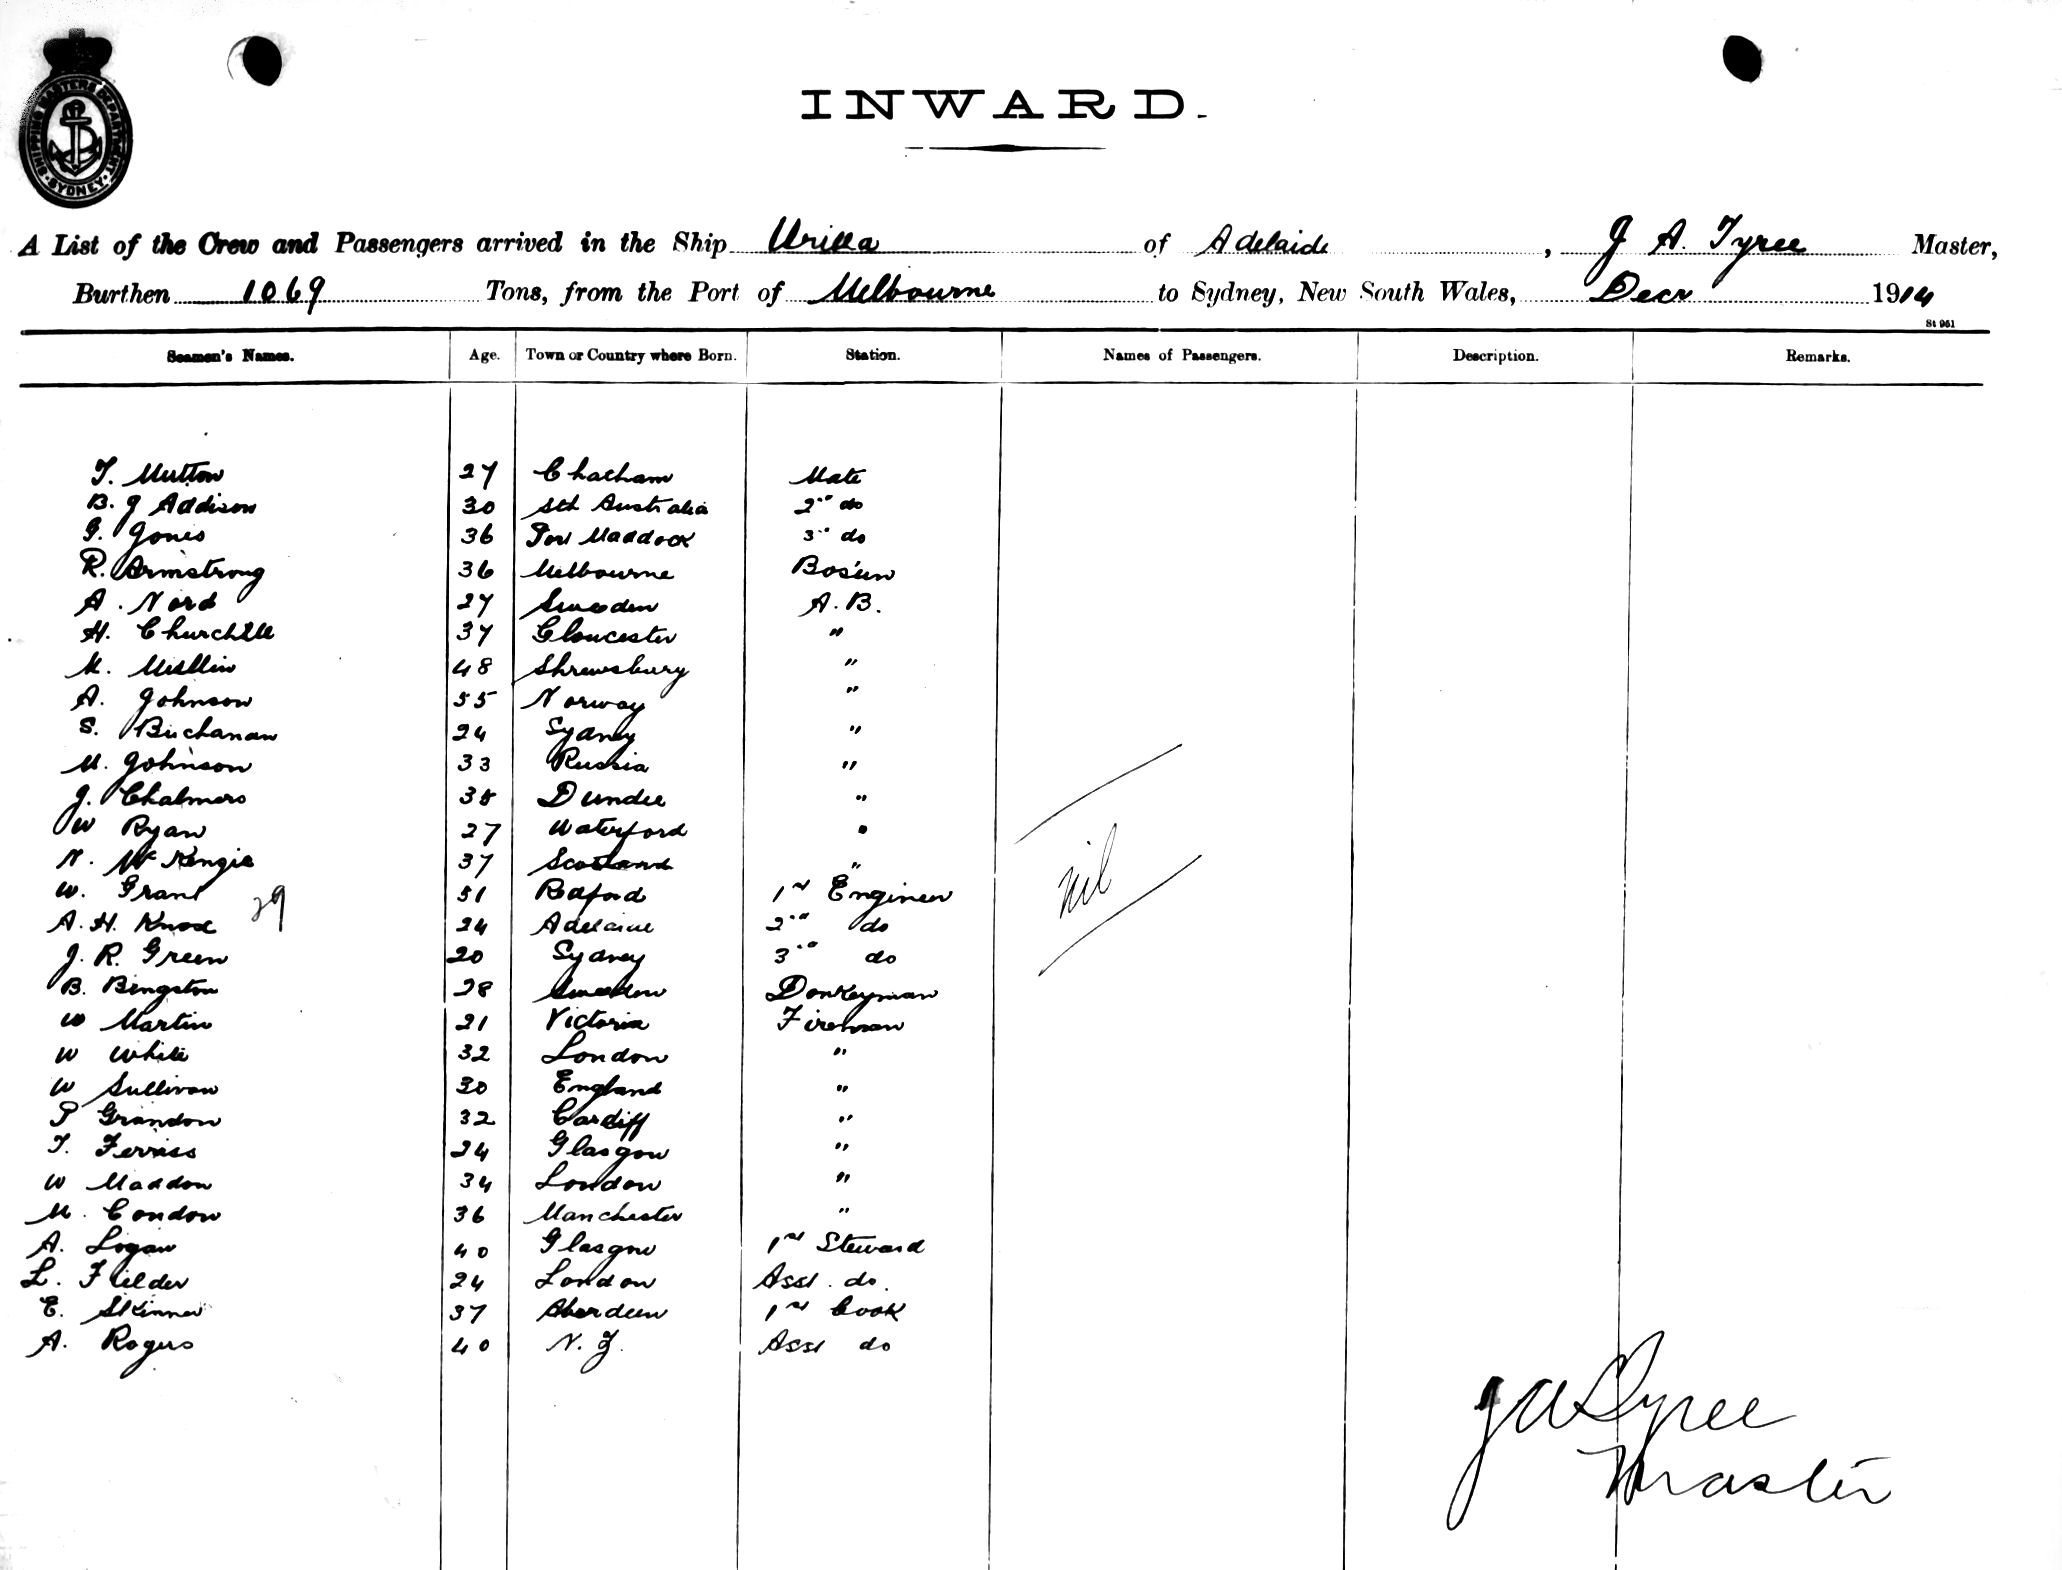 SHIPPING MASTERS DEPARTMENT
SYDNEY
INWARD.
A List of the Crew and Passengers arrived in the Ship Urilla of Adelaide, J A. Tyree Master,
Burthen 1069 Tons, from the Port of Melbourne to Sydney, New South Wales, Decr 1914
St 951
Seamen's Names. Age. Town or Country where Born. Station. Names of Passengers. Description. Remarks.
T. Mutton 27 Chatham Mate
B. J Addison 30 Sth Australia 2nd do
G. Jones 36 Port Maddock 3rd do
R. Armstrong 36 Melbourne Bos'un
A. Nord 27 Sweden A.B.
H. Churchill 37 Gloucester "
M. Mullin 48 Shrewsbury "
A. Johnson 55 Norway "
S. Buchanan 24 Sydney "
M. Johnson 33 Russia "
J. Chalmers 38 Dundee "
W Ryan 27 Waterford "
N. McKenzie 37 Scotland "
nil
W. Grant 51 Retford 1st Engineer
29
A. H. Knox 24 Adelaide 2nd do
J. R. Green 20 Sydney 3rd do
B. Bengston 28 Sweden Donkeyman
W Martin 21 Victoria Fireman
W White 32 London "
W Sullivan 30 England "
P Grandon 32 Cardiff "
T. Ferriss 24 Glasgow "
W Maddon 34 London "
M. Condon 36 Manchester "
A. Logan 40 Glasgow 1st Steward
L. Fielder 24 London Asst. do.
E. Skinner 37 Aberdeen 1st Cook
A. Rogers 40 N. Z. Asst do
J A Tyree
Master